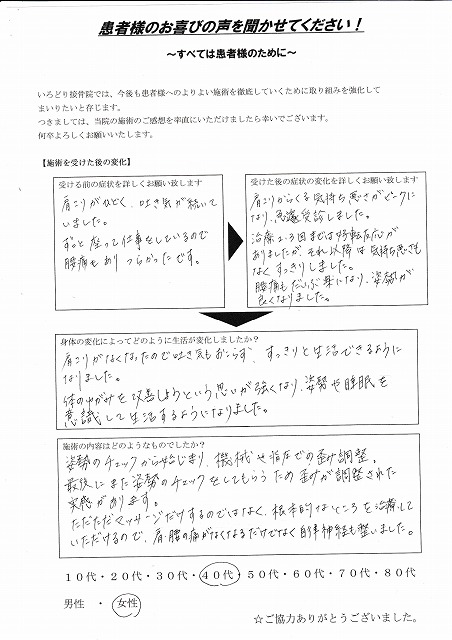 患者様のお喜びの声を聞かせてください！
～すべては患者様のために～
いろどり接骨院では、今後も患者様へのよりよい施術を徹底していくために取り組みを強化して
まいりたいと存じます。
つきましては、当院の施術のご感想を率直にいただけましたら幸いでございます。
何卒よろしくお願いいたします。
【施術を受けた後の変化】
受ける前の症状を詳しくお願い致します
肩こりがひどく、吐き気が続いて
いました。
ずっと座って仕事をしているので
腰痛もあり つらかったです。
受けた後の症状を詳しくお願い致します
肩こりからくる気持ち悪さがピークに
なり、急遽受診しました。
治療2、3回までは好転反応が
ありましたが、それ以降は気持ち悪さも
なくすっきりしました。
腰痛もだいぶ楽になり、姿勢が
良くなりました。
身体の変化によってどのように生活が変化しましたか？
肩こりがなくなったので吐き気もおこらず、すっきりと生活できるように
なりました。
体のゆがみを改善しようという思いが強くなり、姿勢や睡眠を
意識して生活するようになりました。
施術の内容はどのようなものでしたか？
姿勢のチェックから始まり、機械や指などの歪み調整。
最後にまた姿勢のチェックをしてもらうため歪みが調整された
実感があります。
ただただマッサージだけするのではなく、根本的なところを治療して
いただけるので、肩・腰の痛がなくなるだけでなく自律神経も整いました。
10代・20代・30代・40代・50代・60代・70代・80代
男性 ・ 女性
☆ご協力ありがとうございました。